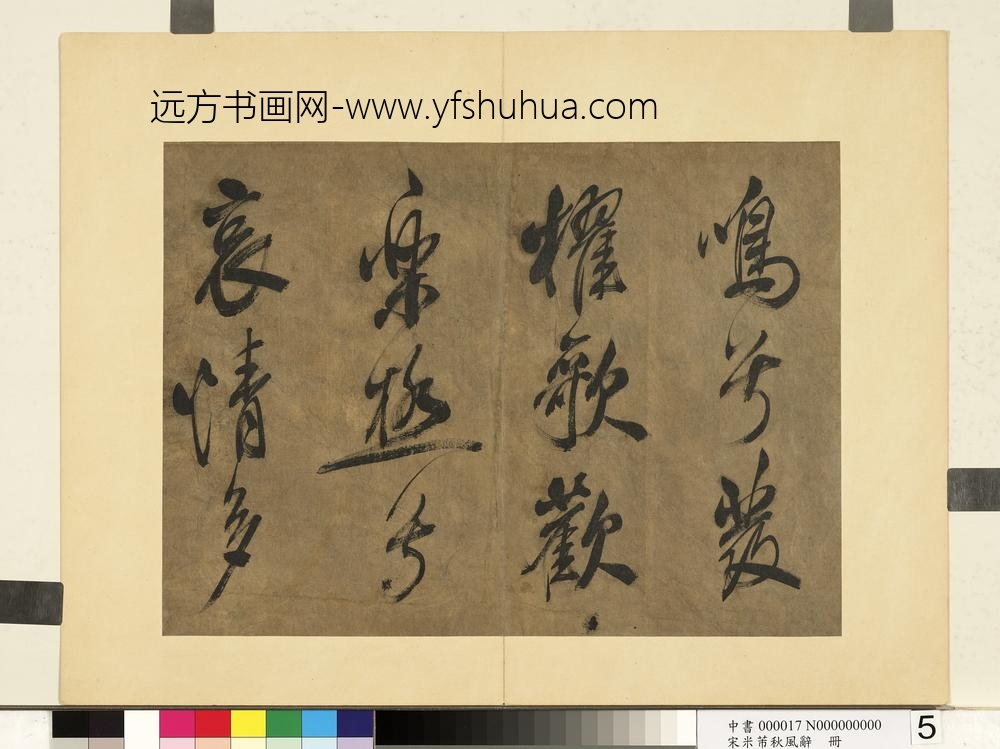 远方书画网-www.yfshuhua.com
鳴兮發
櫂歌歡
樂極兮
哀情多
中書 000017 N000000000
宋米芾秋風辭 冊
5